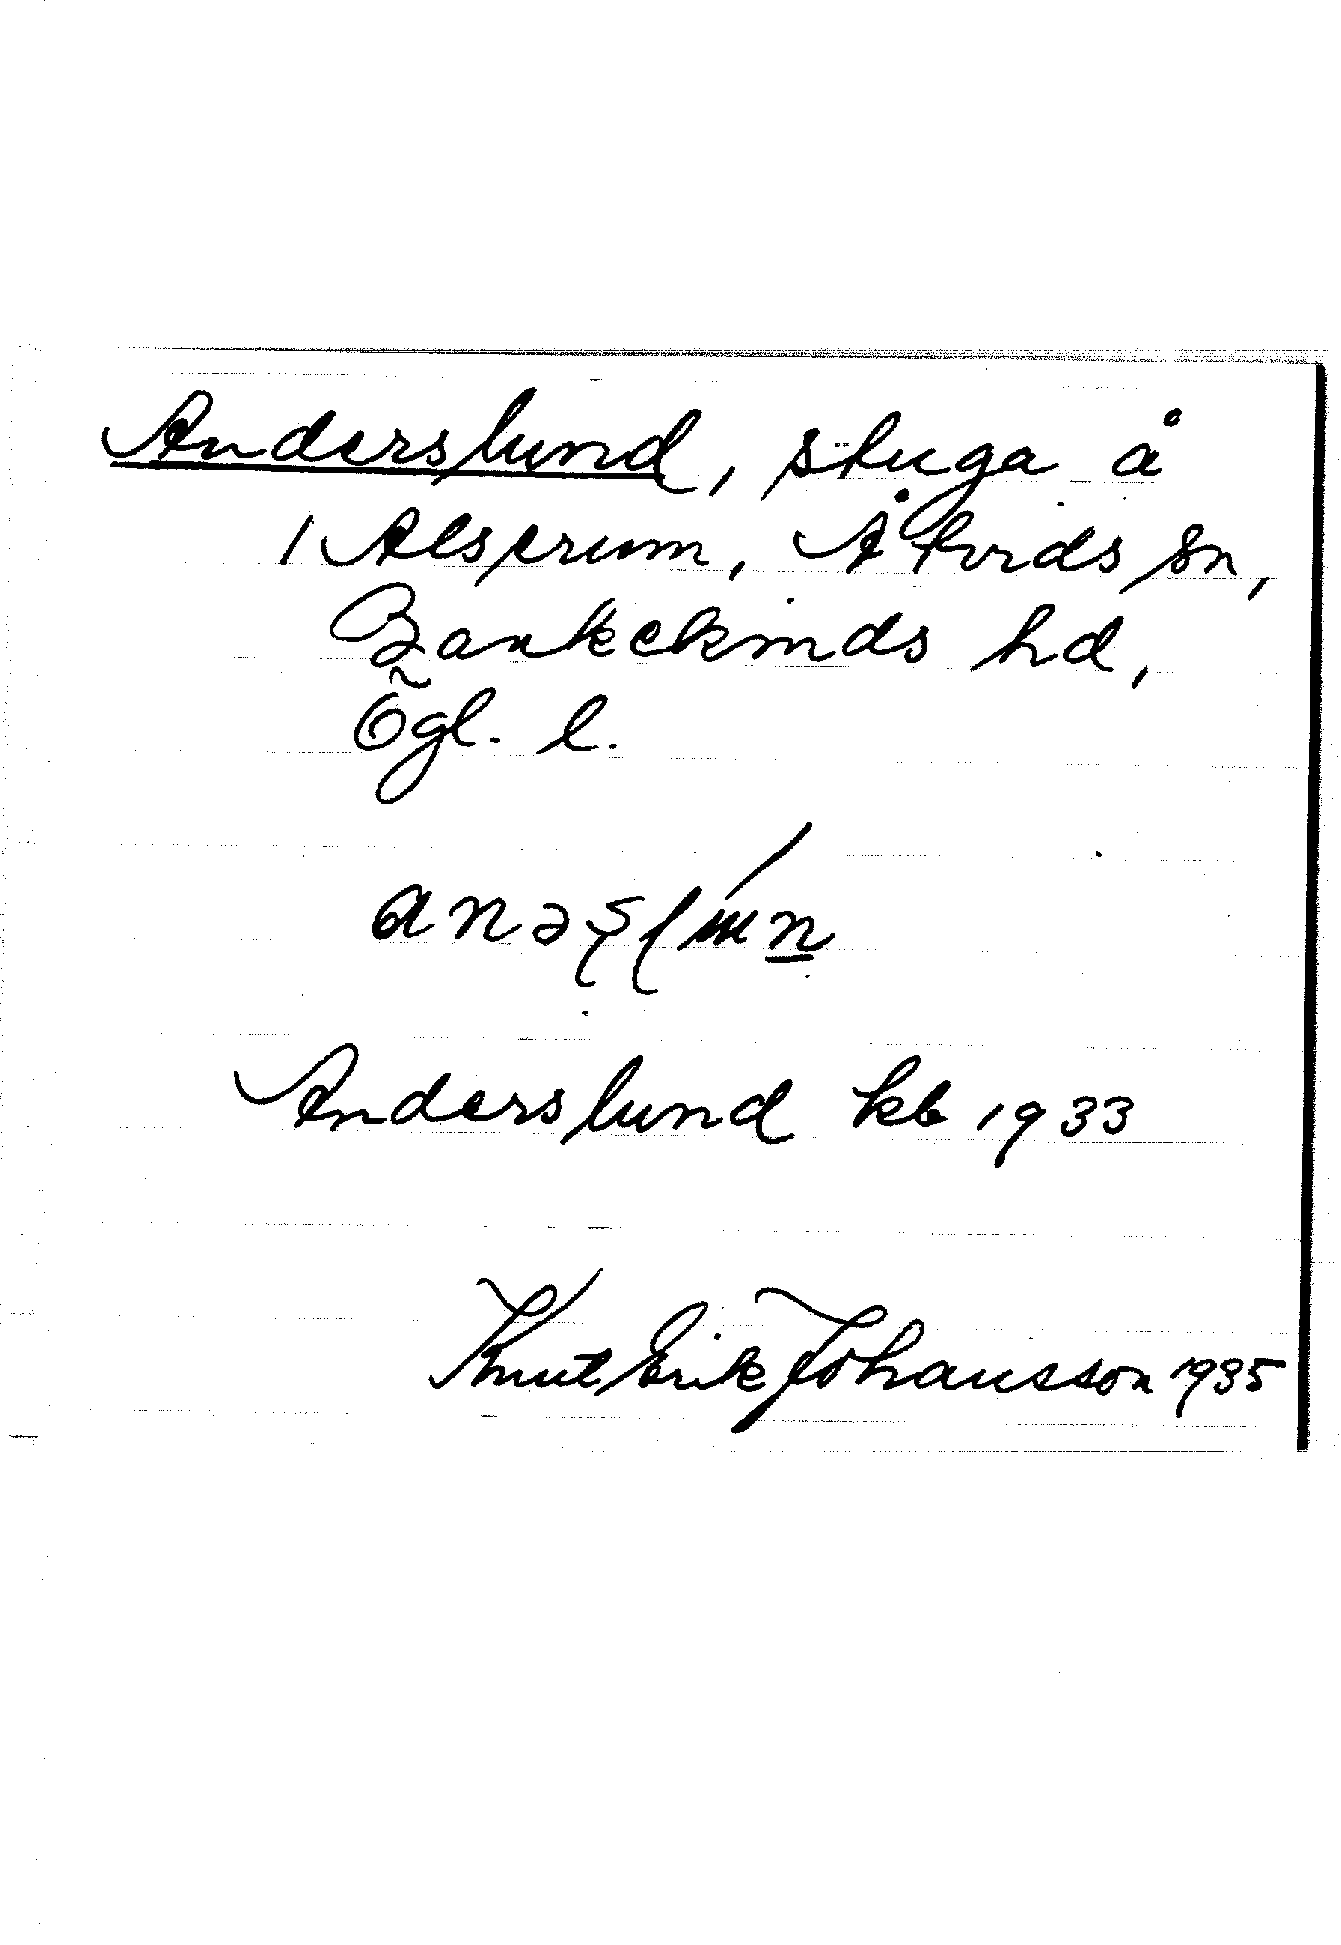 Anderslund, stuga å
1 Alserum, Åtvids sn,
Bankekinds hd,
Ögl. l.
Anderslund kb 1933
Knut Erik Johansson 1935